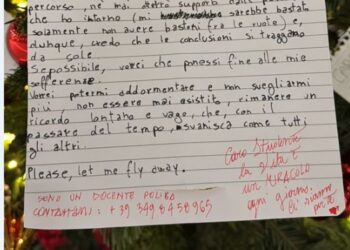 percorso, né mai dietro supporto dalle persone
che ho intorno (mi sarebbe bastato
solamente non avere bastoni fra le ruote) e,
dunque, credo che le conclusioni si traggano
da sole.
Se possibile, vorrei che ponessi fine alle mie
sofferenze.
Vorrei potermi addormentare e non svegliarmi
più, non essere mai esistito, rimanere un
ricordo lontano e vago, che, con il
passare del tempo, svanisca come tutti
gli altri.
Please, let me fly away.
SONO UN DOCENTE POLIBA
CONTATTAMI: +39 349 8458965
Caro Studente
la Vita è
un MIRACOLO
ogni giorno.